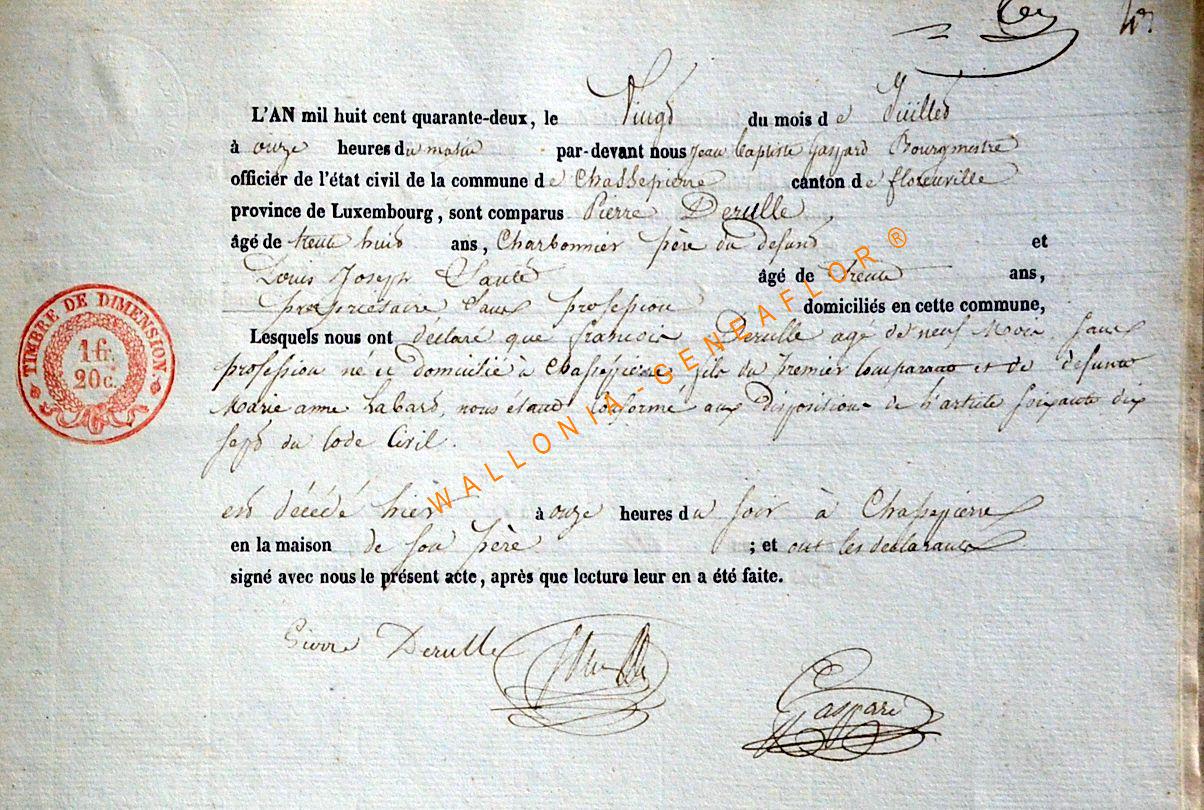 4e
L'AN mil huit cent quarante-deux, le Vingt du mois de Juillet
à onze heures du matin par-devant nous Jean Baptiste Gaspard Bourgmestre
officier de l'état civil de la commune de Chassepierre canton de florenville
province de Luxembourg, sont comparus Pierre Derulle,
âgé de trente huit ans, Charbonnier père du defunt et
Louis Joseph âgé de trente ans,
propriétaire sans profession domiciliés en cette commune,
Lesquels nous ont déclaré que francois Derulle agé de neuf Mois, sans
profession né et Domicilié à Chassepierre, fils du Premier Comparant et de defunte
Marie anne Labard, nous étant Conformé aux Dispositions de l'article soixante dix
sept du Code Civil.
est décédé hier à onze heures du soir à Chassepierre
en la maison de son père ; et ont les declarants
signé avec nous le présent acte, après que lecture leur en a été faite.
Pierre Derulle
Gaspard
TIMBRE DE DIMENSION
1 fr.
20 c.
WALLONIA-GENEAFLOR ®